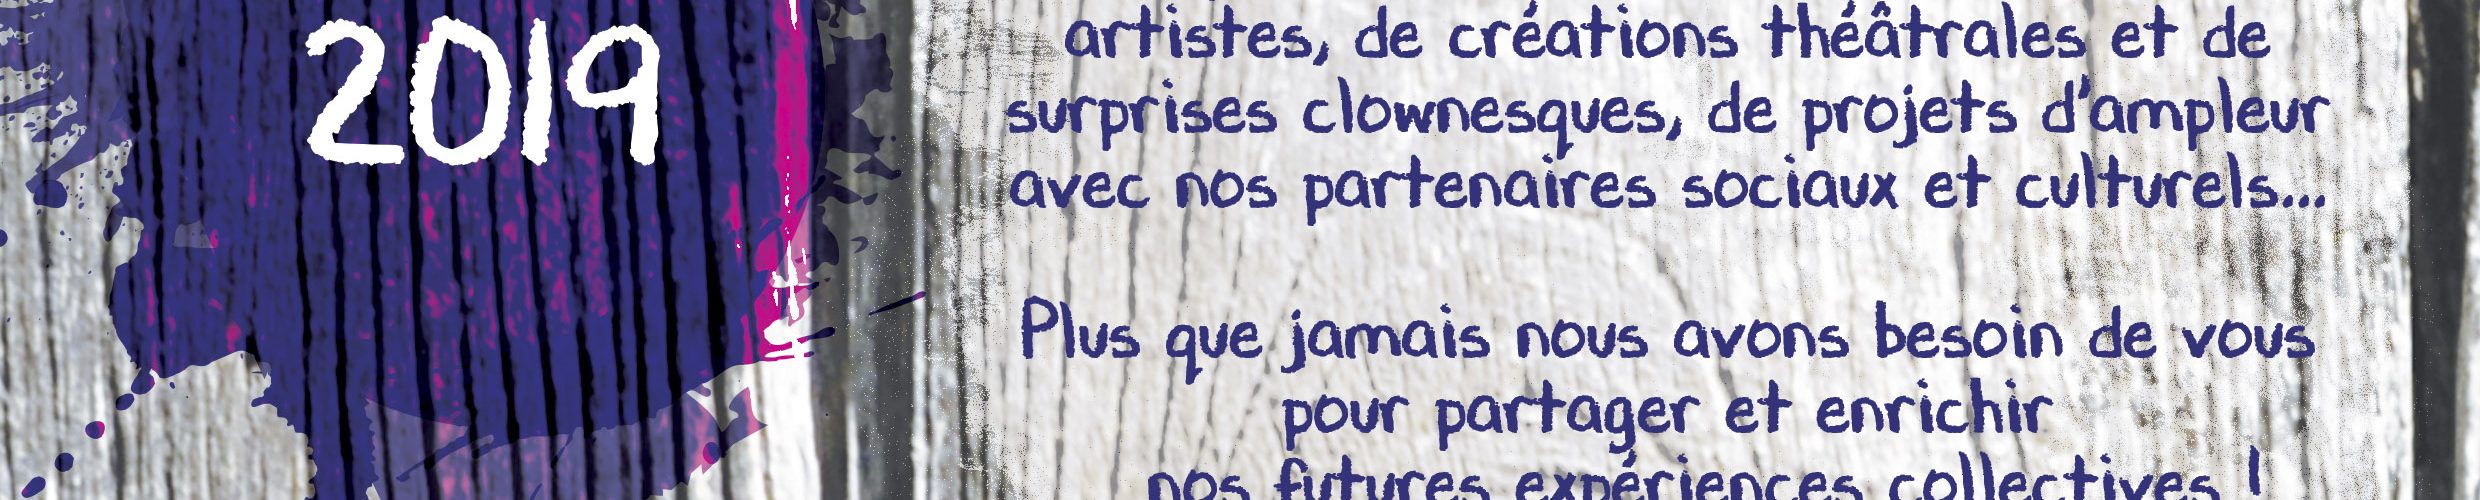 2019
artistes, de créations théâtrales et de
surprises clownesques, de projets d'ampleur
avec nos partenaires sociaux et culturels...
Plus que jamais nous avons besoin de vous
pour partager et enrichir
nos futures expériences collectives !